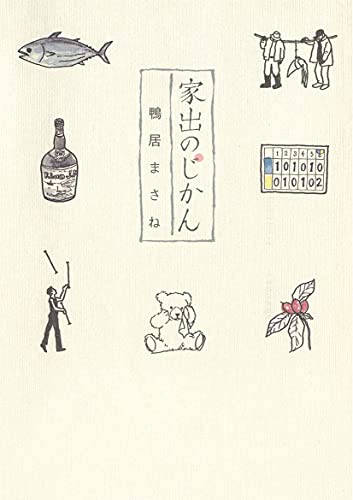 家出のじかん
鴨居まさね
1 2 3 4 5
1 0 1 0 1 0
0 1 0 1 0 2